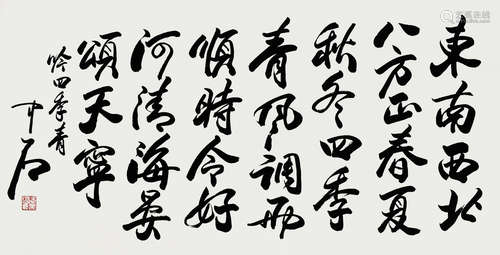 東南西北
八方正春夏
秋冬四季
青風調雨
順時令好
河清海晏
頌天寧
吟四季青
中石